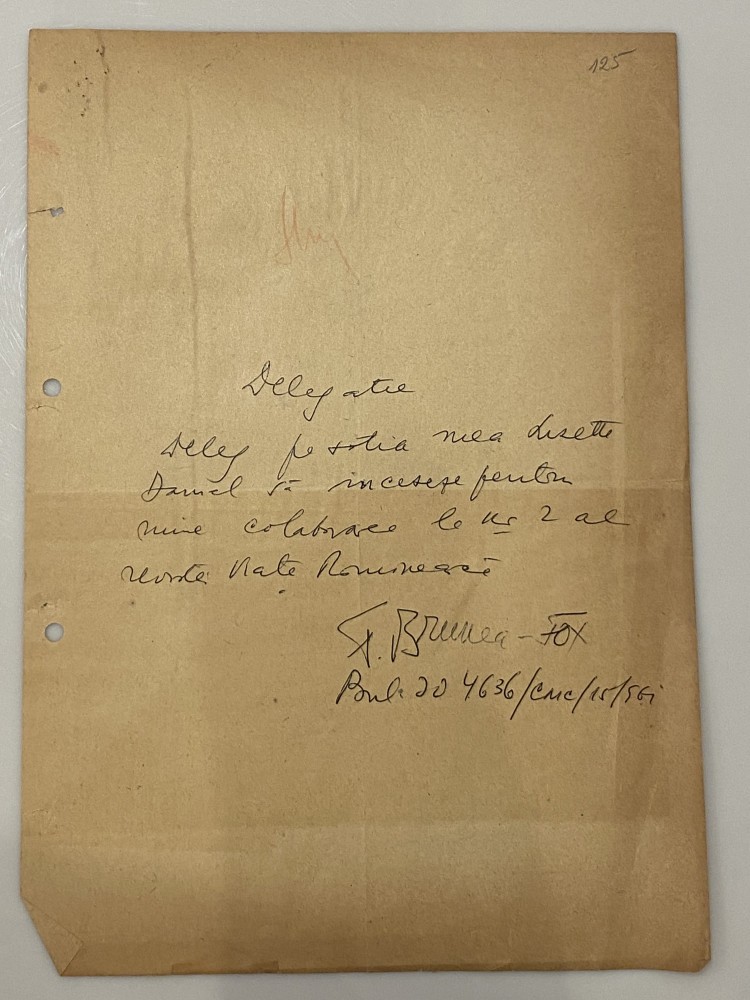 125
Delegatie
Deleg pe sotia mea Lisette
Daniel să incaseze pentru
mine colaborarea la nr 2 al
revistei Viata Romînească
F. Brunea-FOX
Bul. 4636/